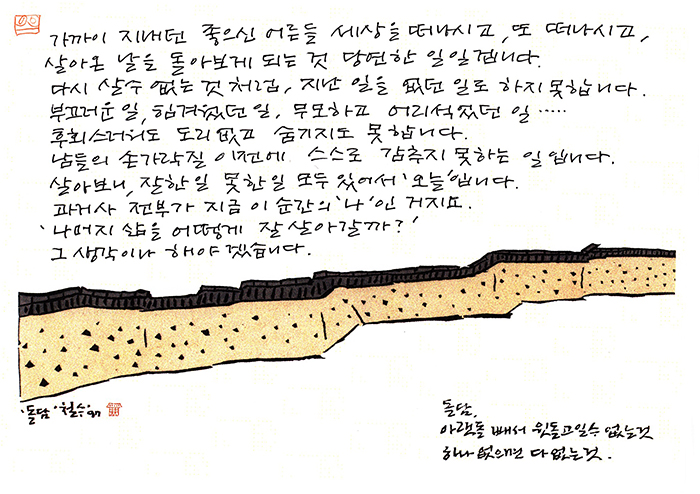 가까이 지내던 좋으신 어른들 세상을 떠나시고, 또 떠나시고,
살아온 날을 돌아보게 되는 것 당연한 일일겝니다.
다시 살수 없는 것처럼, 지난 일을 없던 일로 하지 못합니다.
부끄러운 일, 힘겨웠던 일, 무모하고 어리석었던 일.....
후회스러워도 도리없고 숨기지도 못합니다.
남들의 손가락질 이전에 스스로 감추지 못하는 일입니다.
살아보니, 잘한일 못한일 모두 있어서 '오늘'입니다.
과거사 전부가 지금 이 순간의 '나'인 거지요.
'나머지 삶을 어떻게 잘 살아갈까?'
그 생각이나 해야겠습니다.
'돌담' 철수 97
돌담.
아랫돌 빼서 윗돌고일수 없는것
하나 없으면 다 없는것.